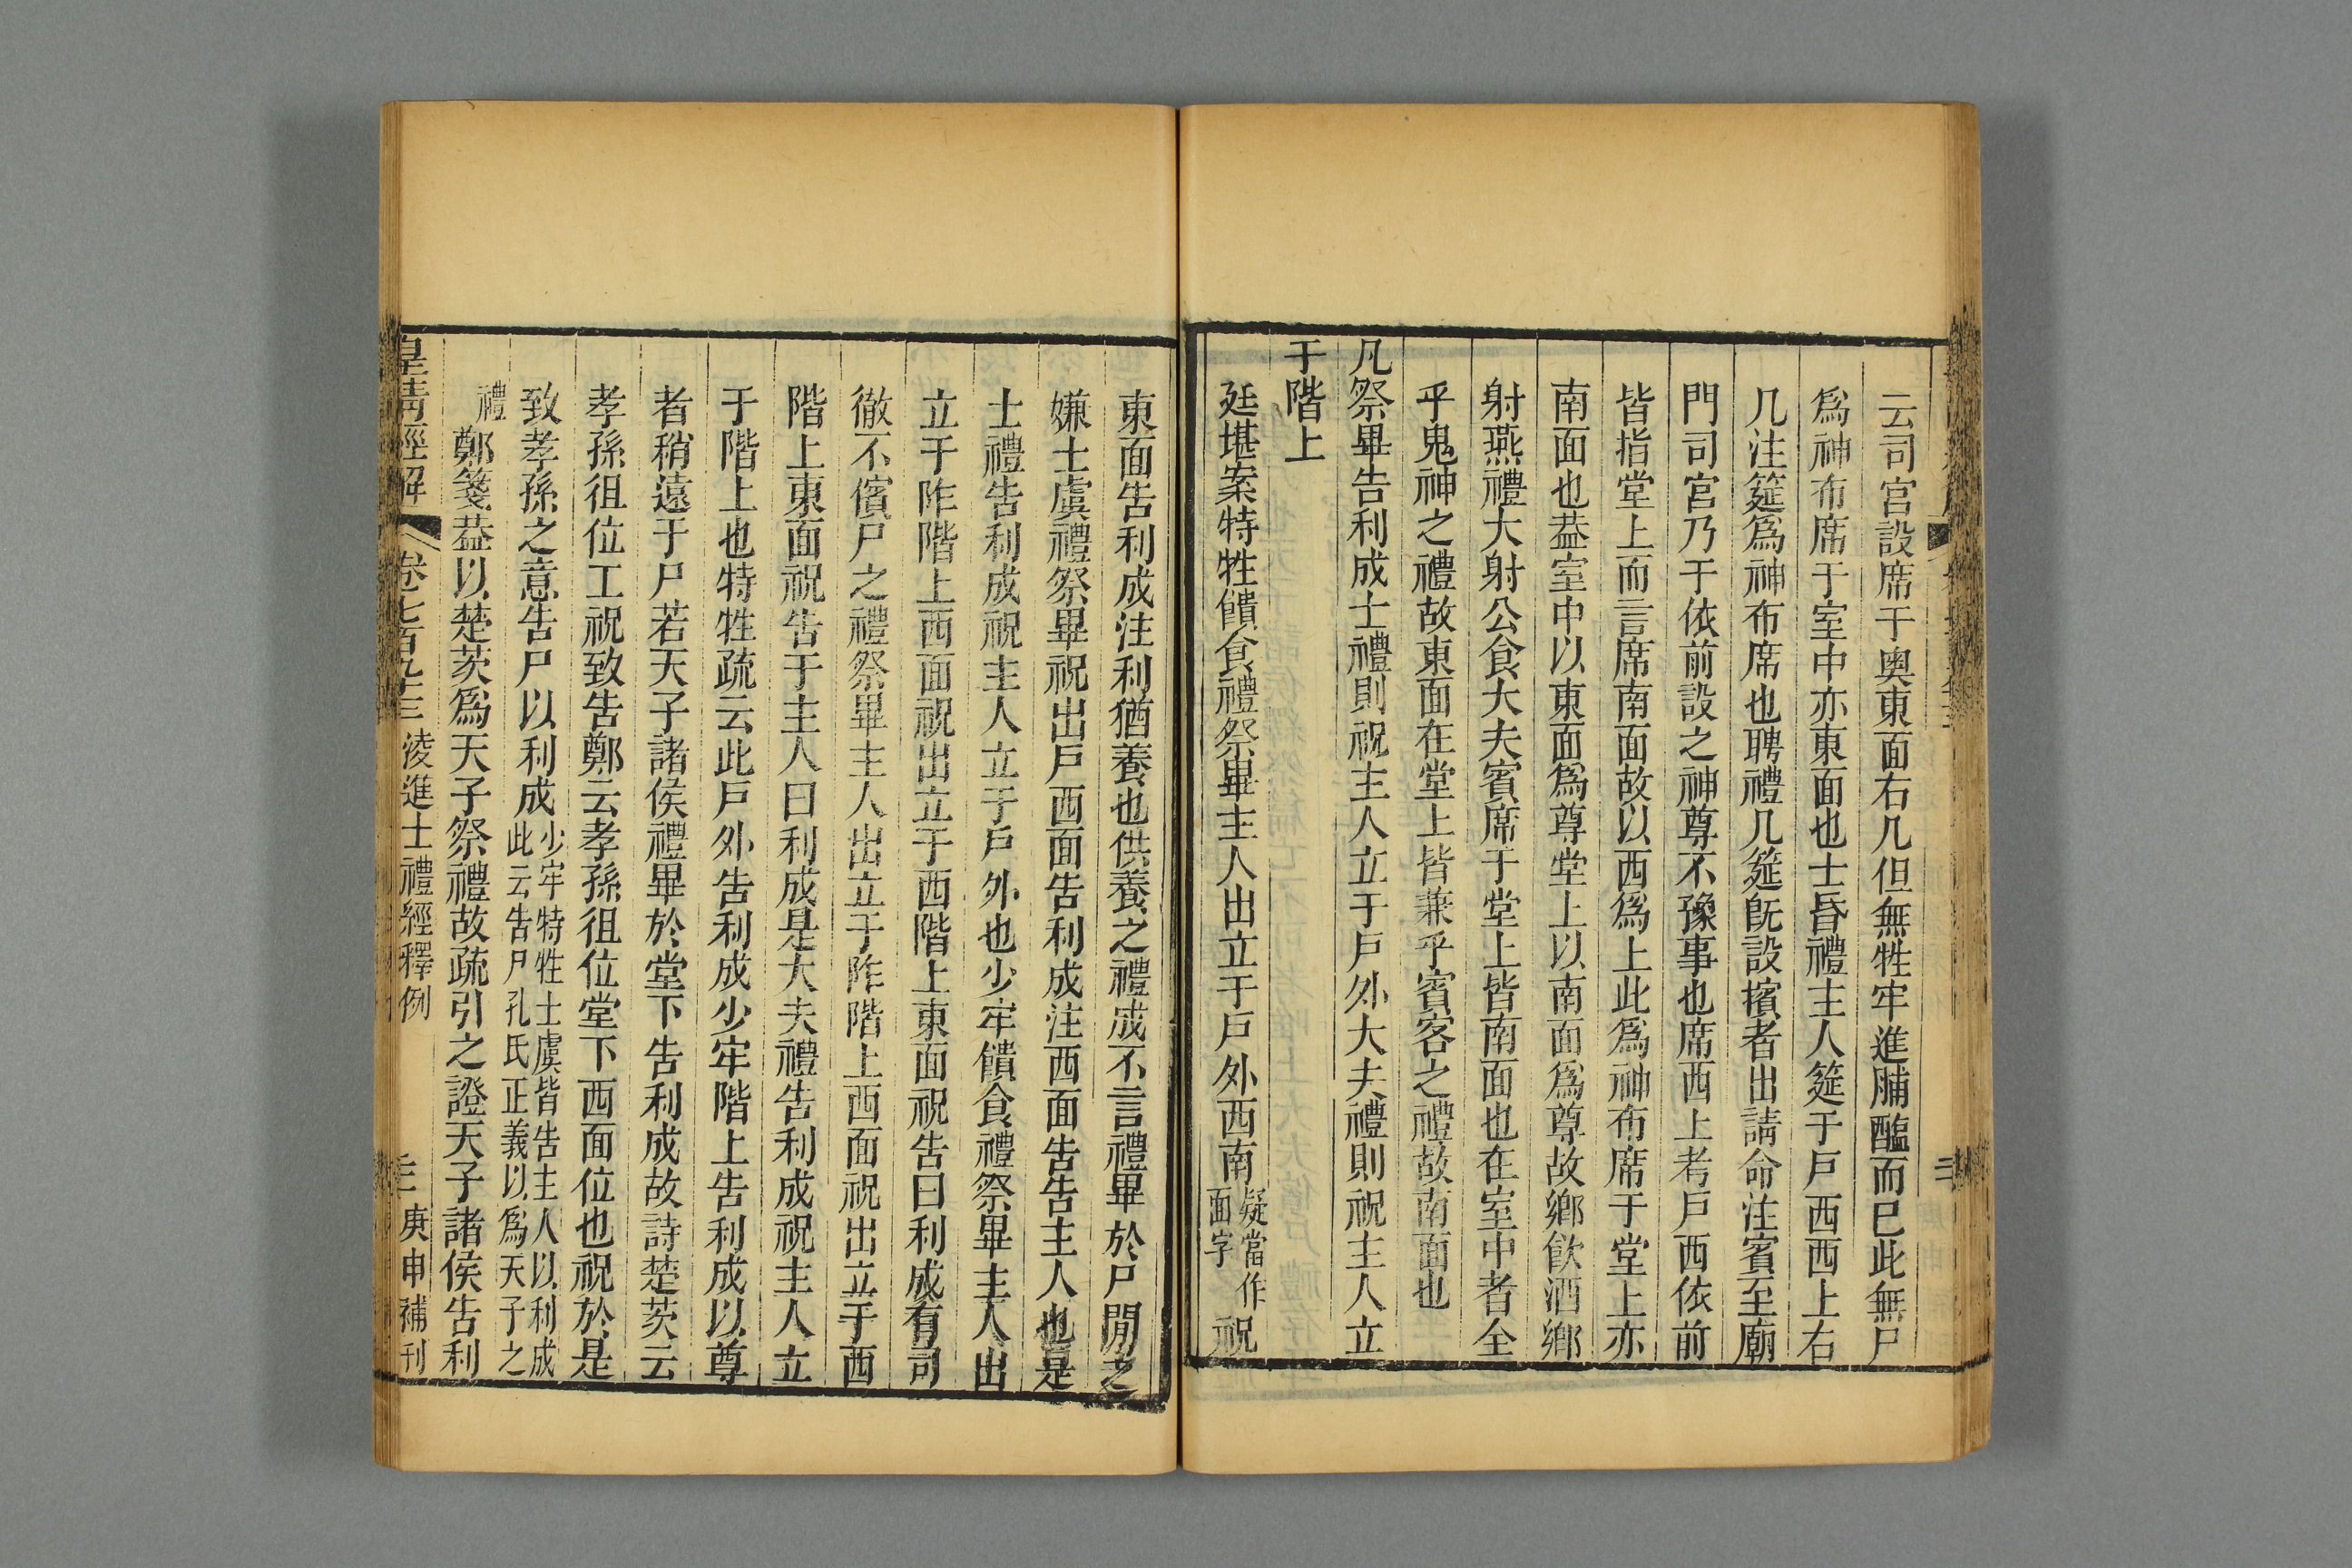 云司宮設席于奧東面右几但無牲牢進脯醢而巳此無尸
爲神布席于室中亦東面也士昏禮主人筵于戶西西上右
几注筵爲神布席也聘禮几筵旣設擯者出請命注賓至廟
門司宮乃于依前設之神尊不豫事也席西上考戶西依前
皆指堂上而言席南面故以西爲上此爲神布席于堂上亦
南面也葢室中以東面爲尊堂上以南面爲尊故鄉飮酒鄉
射燕禮大射公食大夫賓席于堂上皆南面也在室中者全
乎鬼神之禮故東面在堂上皆兼乎賓客之禮故南面也
凡祭畢告利成士禮則祝主人立于戶外大夫禮則祝主人立
于階上
廷堪案特牲饋食禮祭畢主人出立于戶外西南疑當作面字祝
東面告利成注利猶養也供養之禮成不言禮畢於尸閒之
嫌士虞禮祭畢祝出戶西面告利成注西面告告主人也是
士禮告利成祝主人立于戶外也少牢饋食禮祭畢主人出
立于阼階上西面祝出立于西階上東面祝告曰利成有司
徹不儐尸之禮祭畢主人出立于阼階上西面祝出立于西
階上東面祝告于主人曰利成是大夫禮告利成祝主人立
于階上也特牲疏云此戶外告利成少牢階上告利成以尊
者稍遠于尸若天子諸侯禮畢於堂下告利成故詩楚茨云
孝孫徂位工祝致告鄭云孝孫徂位堂下西面位也祝於是
致孝孫之意告尸以利成少牢特牲士虞皆告主人以利成此云告尸孔氏正義以爲天子之
禮鄭箋葢以楚茨爲天子祭禮故疏引之證天子諸侯告利
皇淸經解 卷七百九十三 淩進士禮經釋例 三 庚申補刊